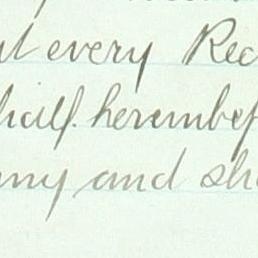 every Rec
half. herembef
any and sh